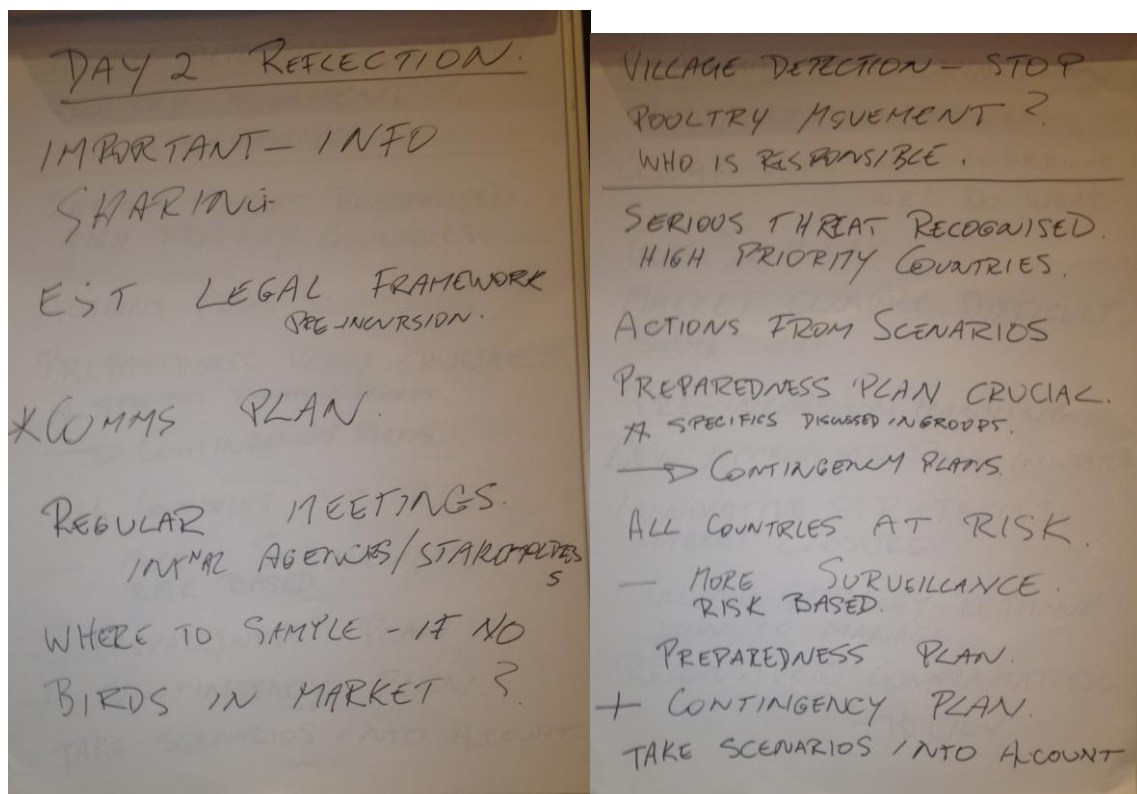 DAY 2 REFLECTION.
IMPORTANT - INFO
SHARING
EST LEGAL FRAMEWORK
PRE-INCURSION.
*COMMS PLAN.
REGULAR MEETINGS.
AGENCIES/STAKEHOLDERS
WHERE TO SAMPLE - IF NO
BIRDS IN MARKET ?
VILLAGE DETECTION - STOP
POULTRY MOVEMENT ?
WHO IS RESPONSIBLE.
SERIOUS THREAT RECOGNISED.
HIGH PRIORITY COUNTRIES.
ACTIONS FROM SCENARIOS
PREPAREDNESS PLAN CRUCIAL.
* SPECIFICS DISCUSSED IN GROUPS.
→ CONTINGENCY PLANS.
ALL COUNTRIES AT RISK.
- MORE SURVEILLANCE.
RISK BASED.
PREPAREDNESS PLAN.
+ CONTINGENCY PLAN.
TAKE SCENARIOS INTO ACCOUNT